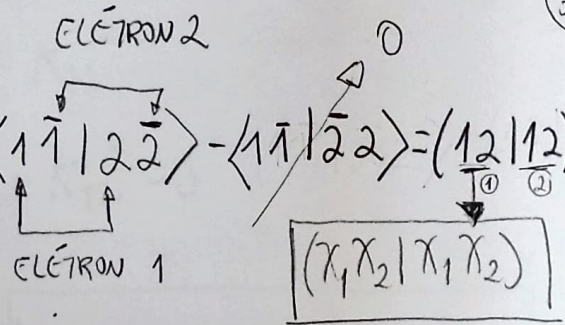 ELÉTRON 2
0
⟨1 1̄ | 2 2̄⟩ - ⟨1 1̄ | 2̄ 2⟩ = (12|12)
① ②
ELÉTRON 1
(χ₁χ₂|χ₁χ₂)